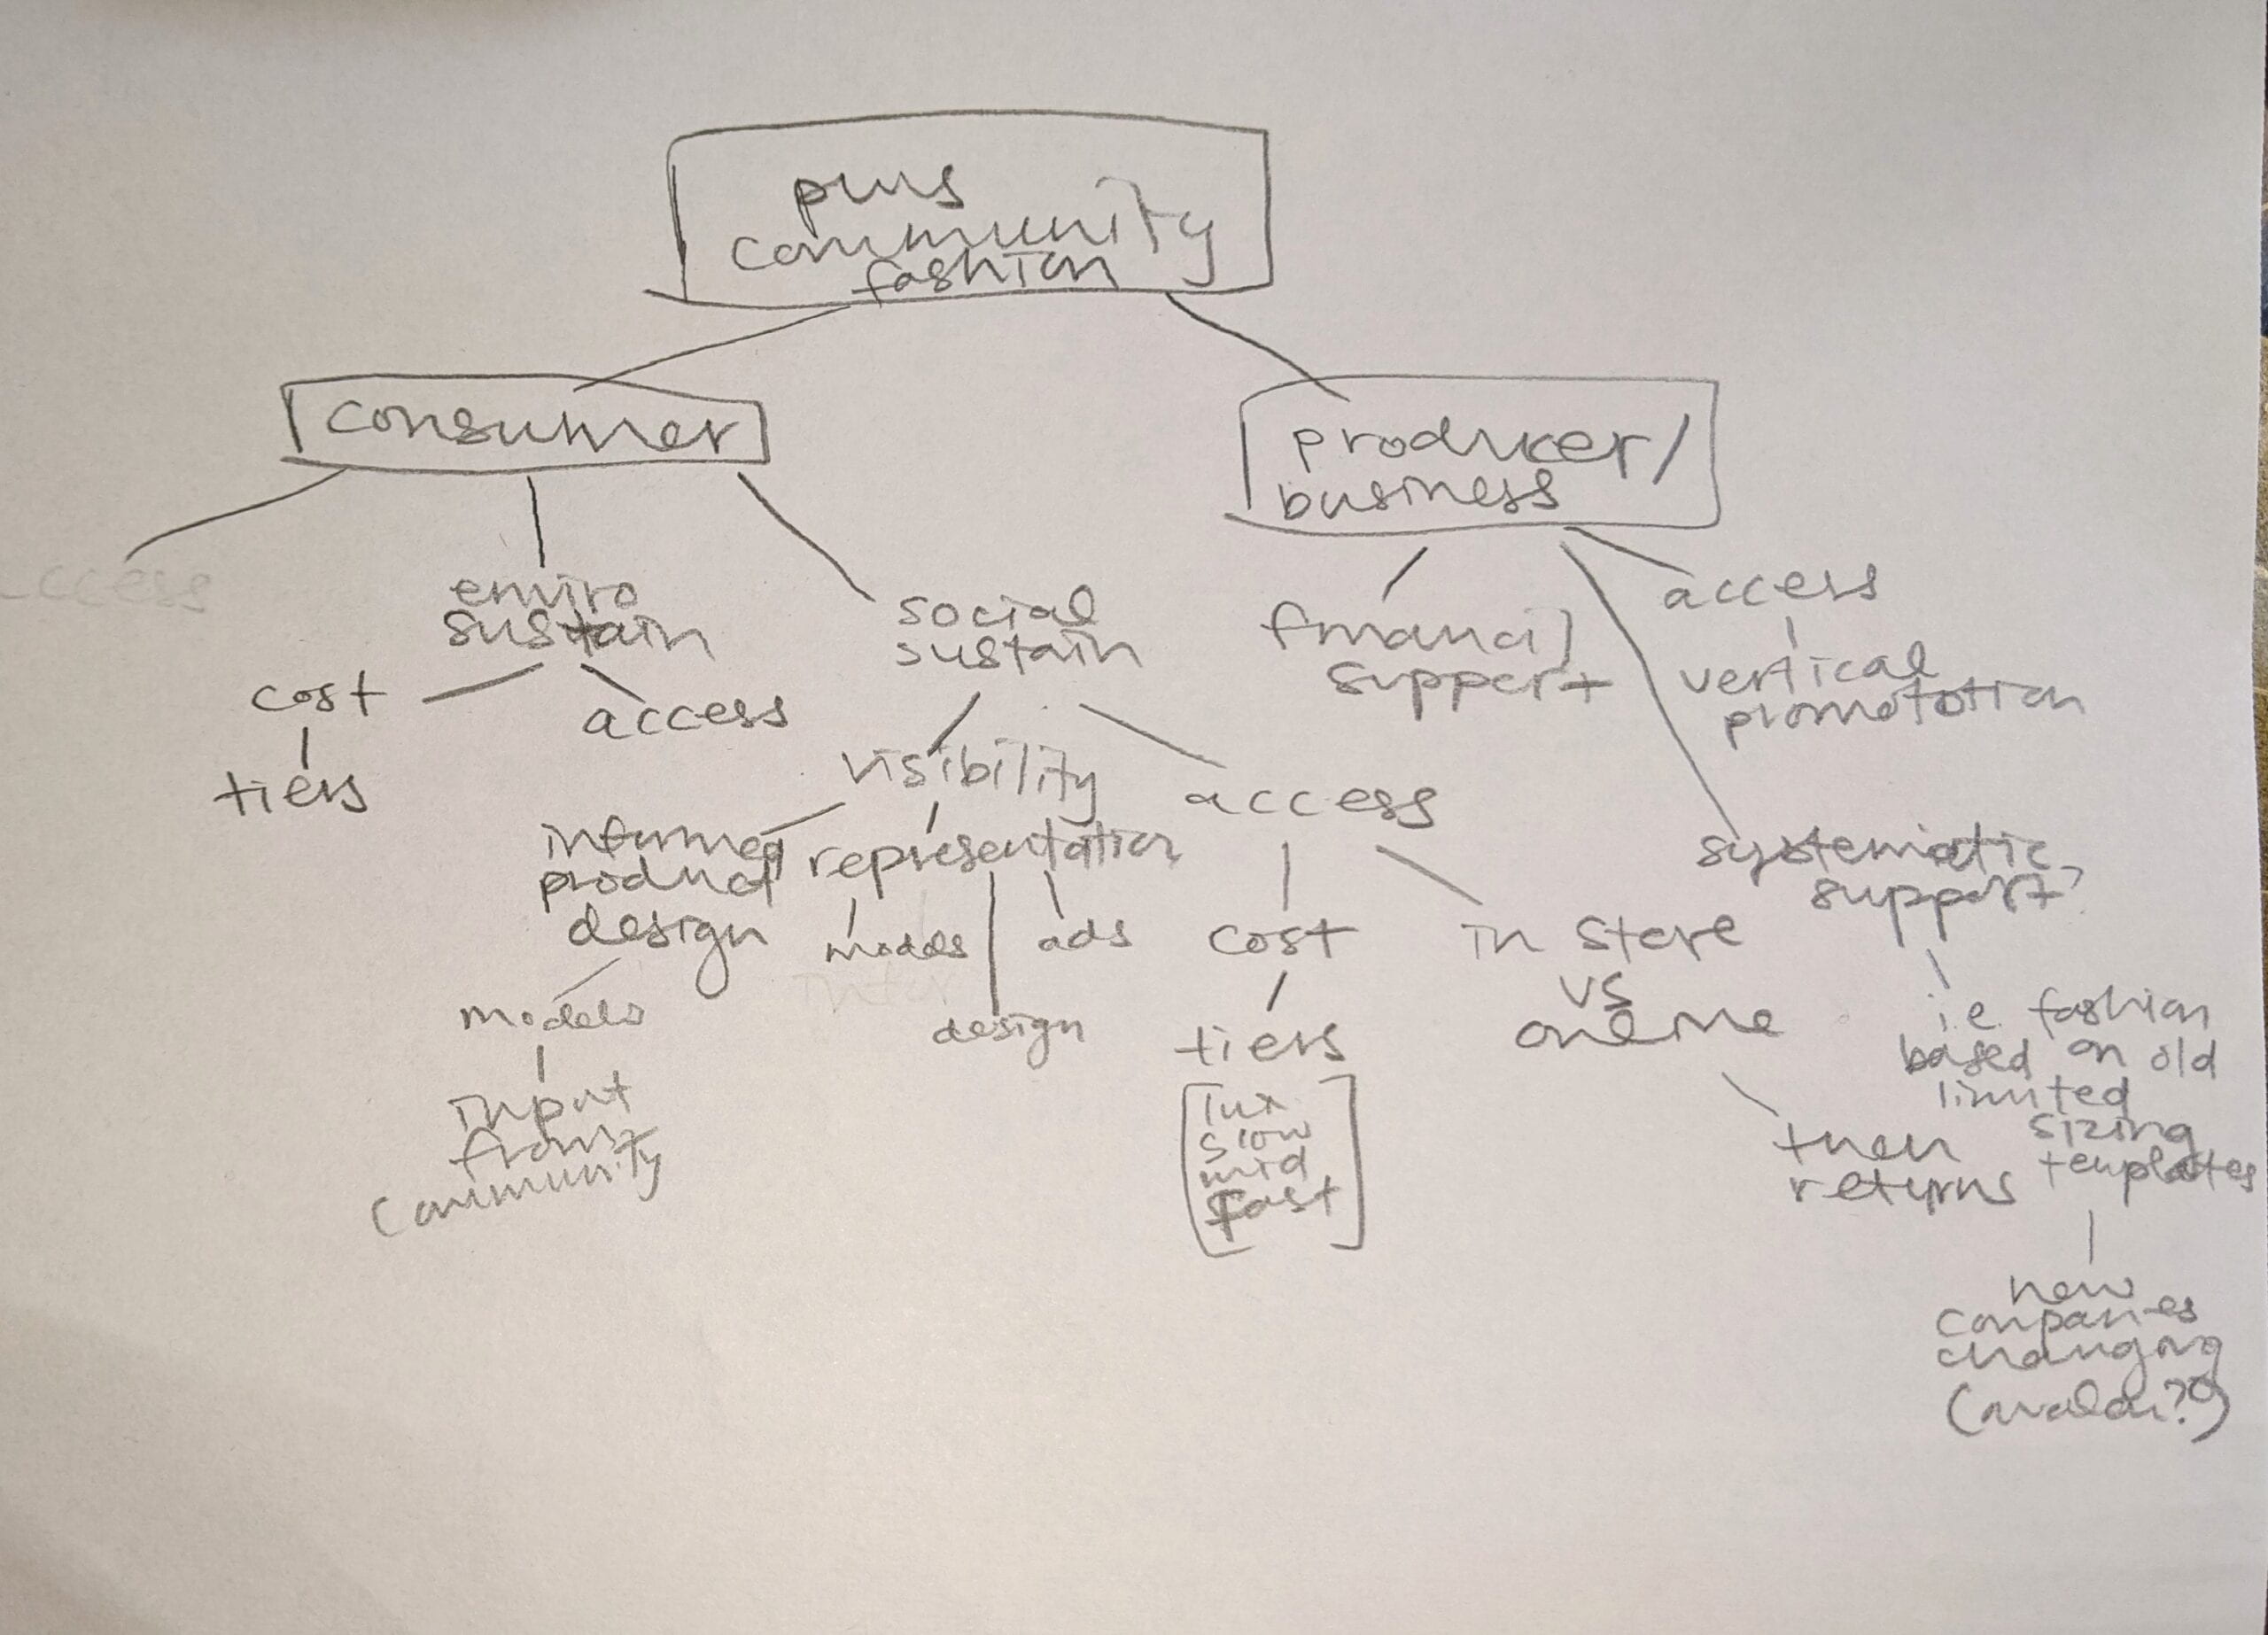 plus
community
fashion
consumer
producer/
business
access
enviro
sustain
social
sustain
financil
support
access
vertical
promototion
cost
access
tiers
visibility
access
informed
product
design
representation
systematic
support?
models
ads
cost
in store
vs
online
models
design
tiers
input
from
community
[lux
slow
mid
fast]
then
returns
i.e. fashion
based on old
limited
sizing
templates
new
companies
changing